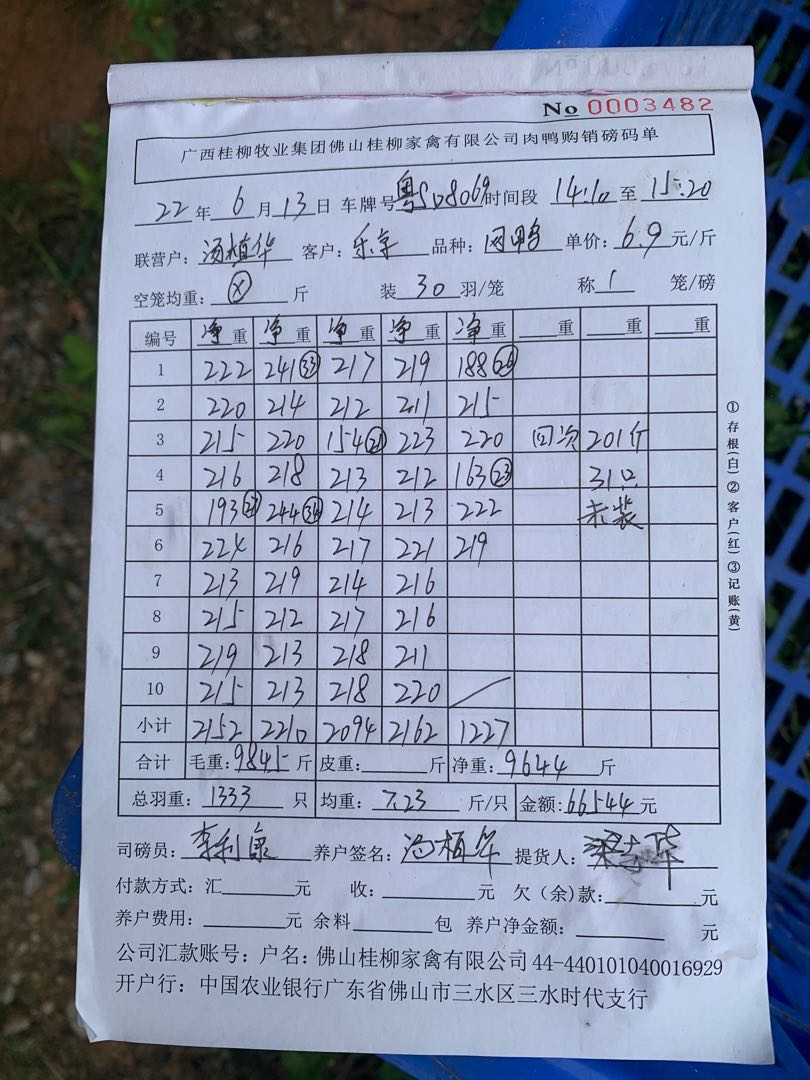 No 0003482
广西桂柳牧业集团佛山桂柳家禽有限公司肉鸭购销磅码单
22 年 6 月 13 日 车牌号 粤S08069 时间段 14:10 至 15:20
联营户: 汤植华 客户: 乐享 品种: 网鸭 单价: 6.9 元/斤
空笼均重: ⓧ 斤 装 30 羽/笼 称 1 笼/磅
编号 净重 净重 净重 净重 净重 重 重 重
1 222 241(33) 217 219 188(26)
2 220 214 212 211 215
3 215 220 154(21) 223 220 回次 201斤
4 216 218 213 212 163(23) 31只
5 193(27) 244(34) 214 213 222 未装
6 224 216 217 221 219
7 213 219 214 216
8 215 212 217 216
9 219 213 218 211
10 215 213 218 220 /
小计 2152 2210 2094 2162 1227
合计 毛重: 9845 斤 皮重: 斤 净重: 9644 斤
总羽重: 1333 只 均重: 7.23 斤/只 金额: 66544 元
司磅员: 李利康 养户签名: 汤植华 提货人:
付款方式: 汇 元 收: 元 欠(余)款: 元
养户费用: 元 余料 包 养户净金额: 元
公司汇款账号: 户名: 佛山桂柳家禽有限公司 44-440101040016929
开户行: 中国农业银行广东省佛山市三水区三水时代支行
①存根(白)②客户(红)③记账(黄)